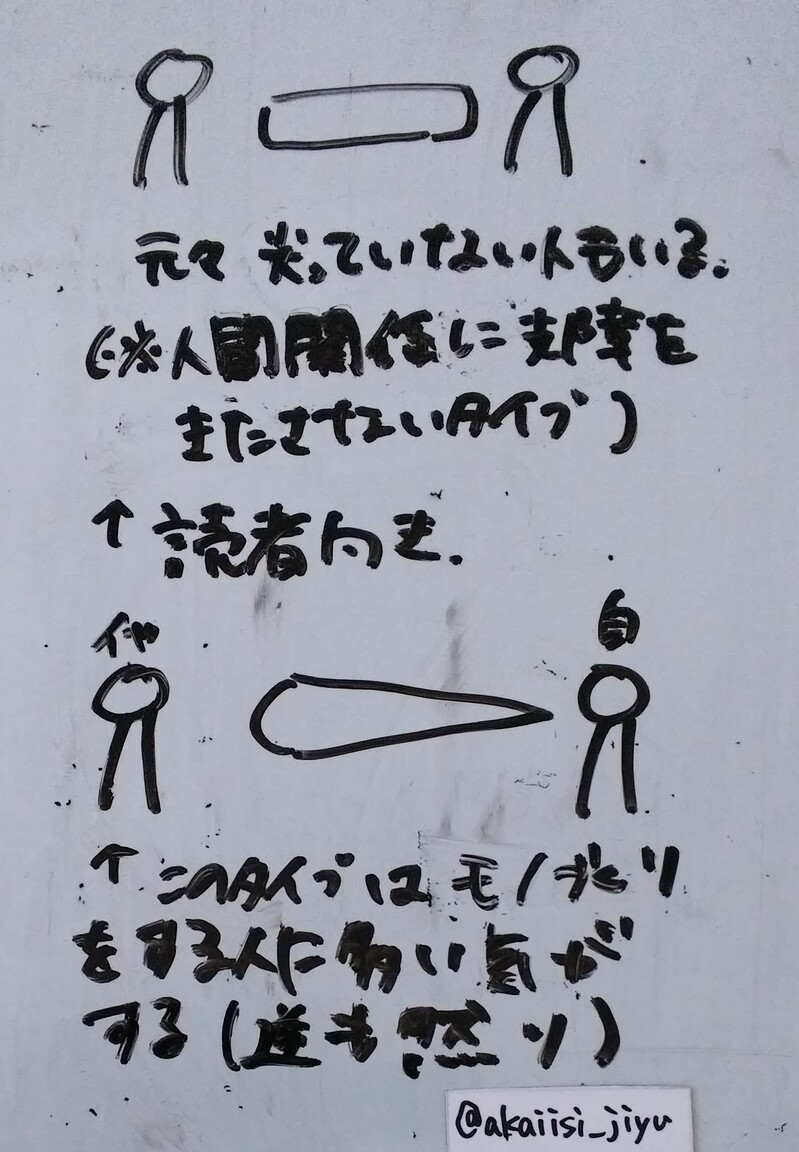 元々 尖っていない人もいる。
(※人間関係に支障を
きたさせないタイプ)
↑ 読者向き.
他
自
↑ このタイプは モノ作り
をする人に多い気が
する(逆も然り)
@akaiisi_jiyu